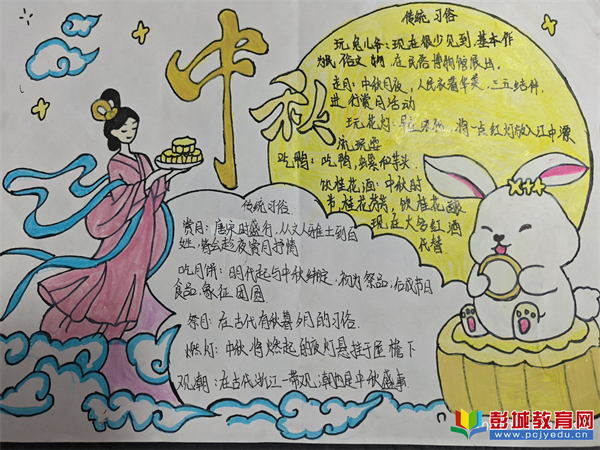 中秋
传统习俗
玩兔儿爷：现在很少见到，基本作
为民俗文物，在民俗博物馆展出。
走月：中秋月夜，人民衣着华美，三五结伴，
进行赏月活动
玩花灯：将一点红灯放入江中漂
流玩耍
吃鸭：吃鸭，螺和芋头，
饮桂花酒：中秋时
节，桂花飘香，饮桂花酿
现在大多红酒
代替
传统习俗
赏月：唐宋时盛行，从文人雅士到百
姓，皆会趁夜赏月抒情
吃月饼：明代起与中秋绑定，初为祭品，后成节日
食品，象征团圆
祭月：在古代有秋暮夕月的习俗
燃灯：中秋将燃起的夜灯悬挂于屋檐下
观潮：在古代浙江一带观潮是中秋盛事
彭城教育网
www.pcjyedu.cn